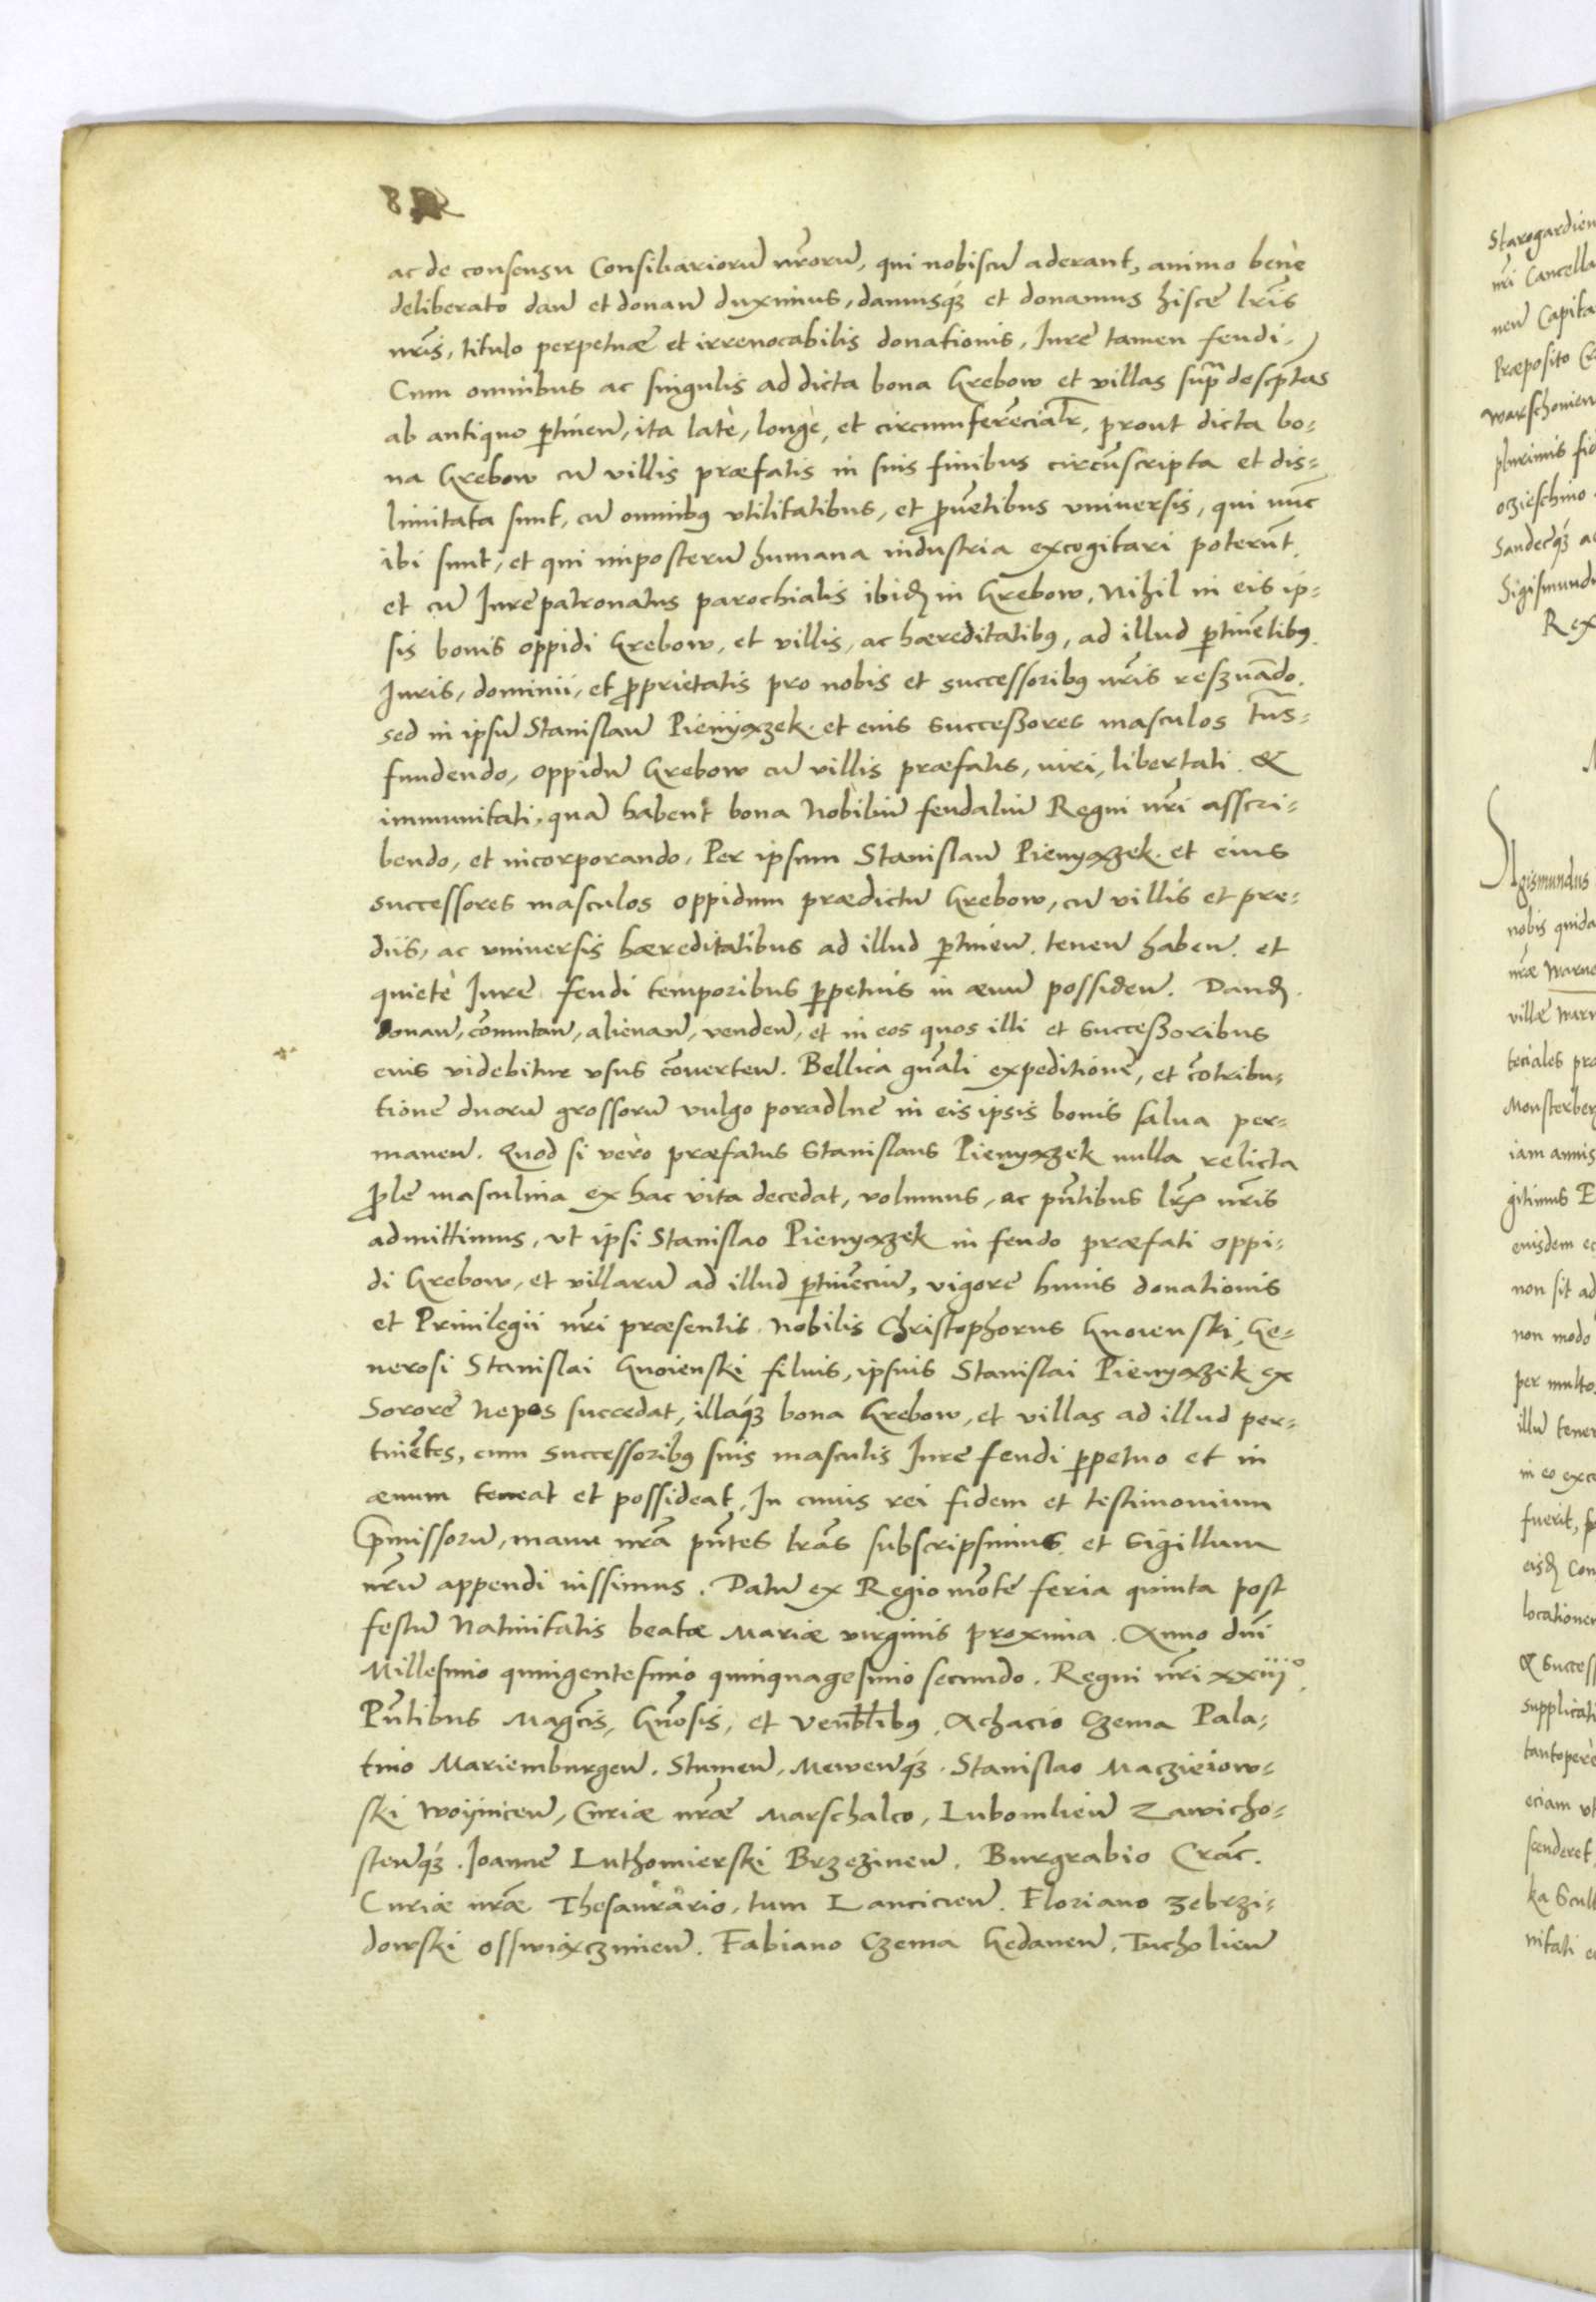 8
ac de consensu Consiliariorū nr̄orū, qui nobiscū aderant, animo benè
deliberato dan̄ et donan̄ duximus, damusq₃ et donamus hisce lr̄is
nr̄is, titulo perpetuæ et irreuocabilis donationis, Iure tamen feudi.
Cum omnibus ac singulis ad dicta bona Grebow et villas supra descptas
ab antiquo ptineñ, ita latè, longè, et circumferēcialr̄, prout dicta bo-
na Grebow cū villis præfatis in suis finibus circūscripta et dis-
limitata sunt, cū omnibꝰ vtilitatibus, et prouētibus vniuersis, qui nūc
ibi sunt, et qui imposterū humana industria excogitari poterūt,
et cū Iurepatronatus parochialis ibid in Grebow. Nihil in eis ip-
sis bonis oppidi Grebow, et villis, ac hæreditatibꝰ, ad illud ptinētibꝰ
Iuris, dominii, et proprietatis pro nobis et successoribꝰ nr̄is reseruādo.
sed in ipsū Stanislaū Pienyązek et eius successores masculos trns-
fundendo, oppidū Grebow cū villis præfatis, iuri, libertati &
immunitati, quā habent bona Nobiliū feudaliū Regni nr̄i asscri-
bendo, et incorporando. Per ipsum Stanislaū Pienyązek et eius
successores masculos oppidum prædictū Grebow, cū villis et præ-
diis, ac vniuersis hæreditatibus ad illud ptineñ. teneñ habeñ. et
quietè Iure feudi temporibus ppetuis in æuū possideñ. Dand
donañ, cōmutañ, alienañ, vendeñ, et in eos quos illi et successoribus
eius videbitur vsus cōuerteñ. Bellica gn̄ali expeditione, et cōtribu-
tione duorū grossorū vulgo poradlne in eis ipsis bonis salua per-
maneñ. Quod si verò præfatus Stanislaus Pienyązek nulla relicta
prole masculina ex hac vita decedat, volumus, ac pn̄tibus lr̄is nr̄is
admittimus, vt ipsi Stanislao Pienyązek in feudo præfati oppi-
di Grebow, et villarū ad illud ptinēciū, vigore huius donationis
et Priuilegii nr̄i præsentis. Nobilis Christophorus Gnoienski, Ge-
nerosi Stanislai Gnoienski filius, ipsius Stanislai Pienyązek ex
Sorore Nepos succedat, illaq₃ bona Grebow, et villas ad illud per-
tinētes, cum successoribꝰ suis masculis Iure feudi ppetuo et in
æuum teneat et possideat. In cuius rei fidem et testimonium
Præmissorū, manu nr̄a pn̄tes lr̄as subscripsimus et Sigillum
nr̄ū appendi iussimus. Datū ex Regiomōte feria quinta post
festū Natiuitatis beatæ Mariæ virginis proxima. Anno dn̄i
Millesimo quingentesimo quinquagesimo secundo. Regni nr̄i xxiij°
Pn̄tibus Magcis, Gn̄osis, et Venblibꝰ, Achacio Czema Pala-
tino Mariemburgeñ. Stumeñ, Meweñq₃. Stanislao Maczieiow-
ski Woijniceñ, Curiæ nr̄æ Marschalco, Lubomlieñ Zawicho-
steñq₃. Ioanne Luthomierski Brzezineñ. Burgrabio Crāc.
Curiæ nr̄æ Thesaurario, tum Lancicieñ. Floriano Zebrzi-
dowski Osswiączimeñ. Fabiano Czema Gedaneñ. Tucholieñ
Starogardien
nr̄i Cancella
neñ Capita
Præposito Cr
Warschouien
plurimis fid
ozieschino
Sandecq₃ a
Sigismundi
Rex
Sigismundus
nobis quida
nr̄æ Warne
villæ Warn
teciales pro
Monsterber
iam annis
gitimus E
eiusdem ec
non sit ad
non modo
per multo
illū tener
in eo exce
fuerit, p
eisd con
locationem
& Success
supplicati
tantoperè
eciam vt
scenderet
ka Scult
nitati e